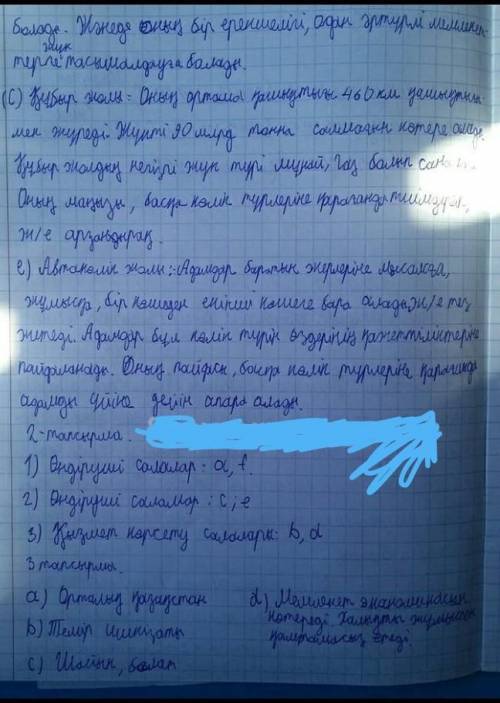 болады. Және де оның бір ерекшелігі, одан әртүрлі мемлекет-
терге жүк тасымалдауға болады.
(С) Құбыр жолы - Оның орташа қашықтығы 460 км қашықтық
мен жүреді. Жүкті 90 млрд тонна салмағын көтере алады.
Құбыр жолдың негізгі жүк түрі мұнай, газ болып сана
Оның маңызы, басқа көлік түрлеріне қарағанда тиімдірек,
ж/е арзандырақ.
е) Автокөлік жолы: Адамдар баратын жерлеріне мысалға,
жұмысқа, бір көшеден екінші көшеге бара алады, ж/е тез
жетеді. Адамдар бұл көлік түрін өздерінің қажеттіліктеріне
пайдаланады. Оның пайдасы, басқа көлік түрлеріне қарағанда
адамды үйіне дейін апара алады.
2-тапсырма.
1) Өндіруші салалар: a, f.
2) Өндіруші салалар: c; e
3) Қызмет көрсету салалары: b, d
3 тапсырма.
a) Орталық Қазақстан
b) Темір шикізаты
c) Шойын, болат
d) Мемлекет экономикасын
көтереді. Халықты жұмыспен
қамтамасыз етеді.